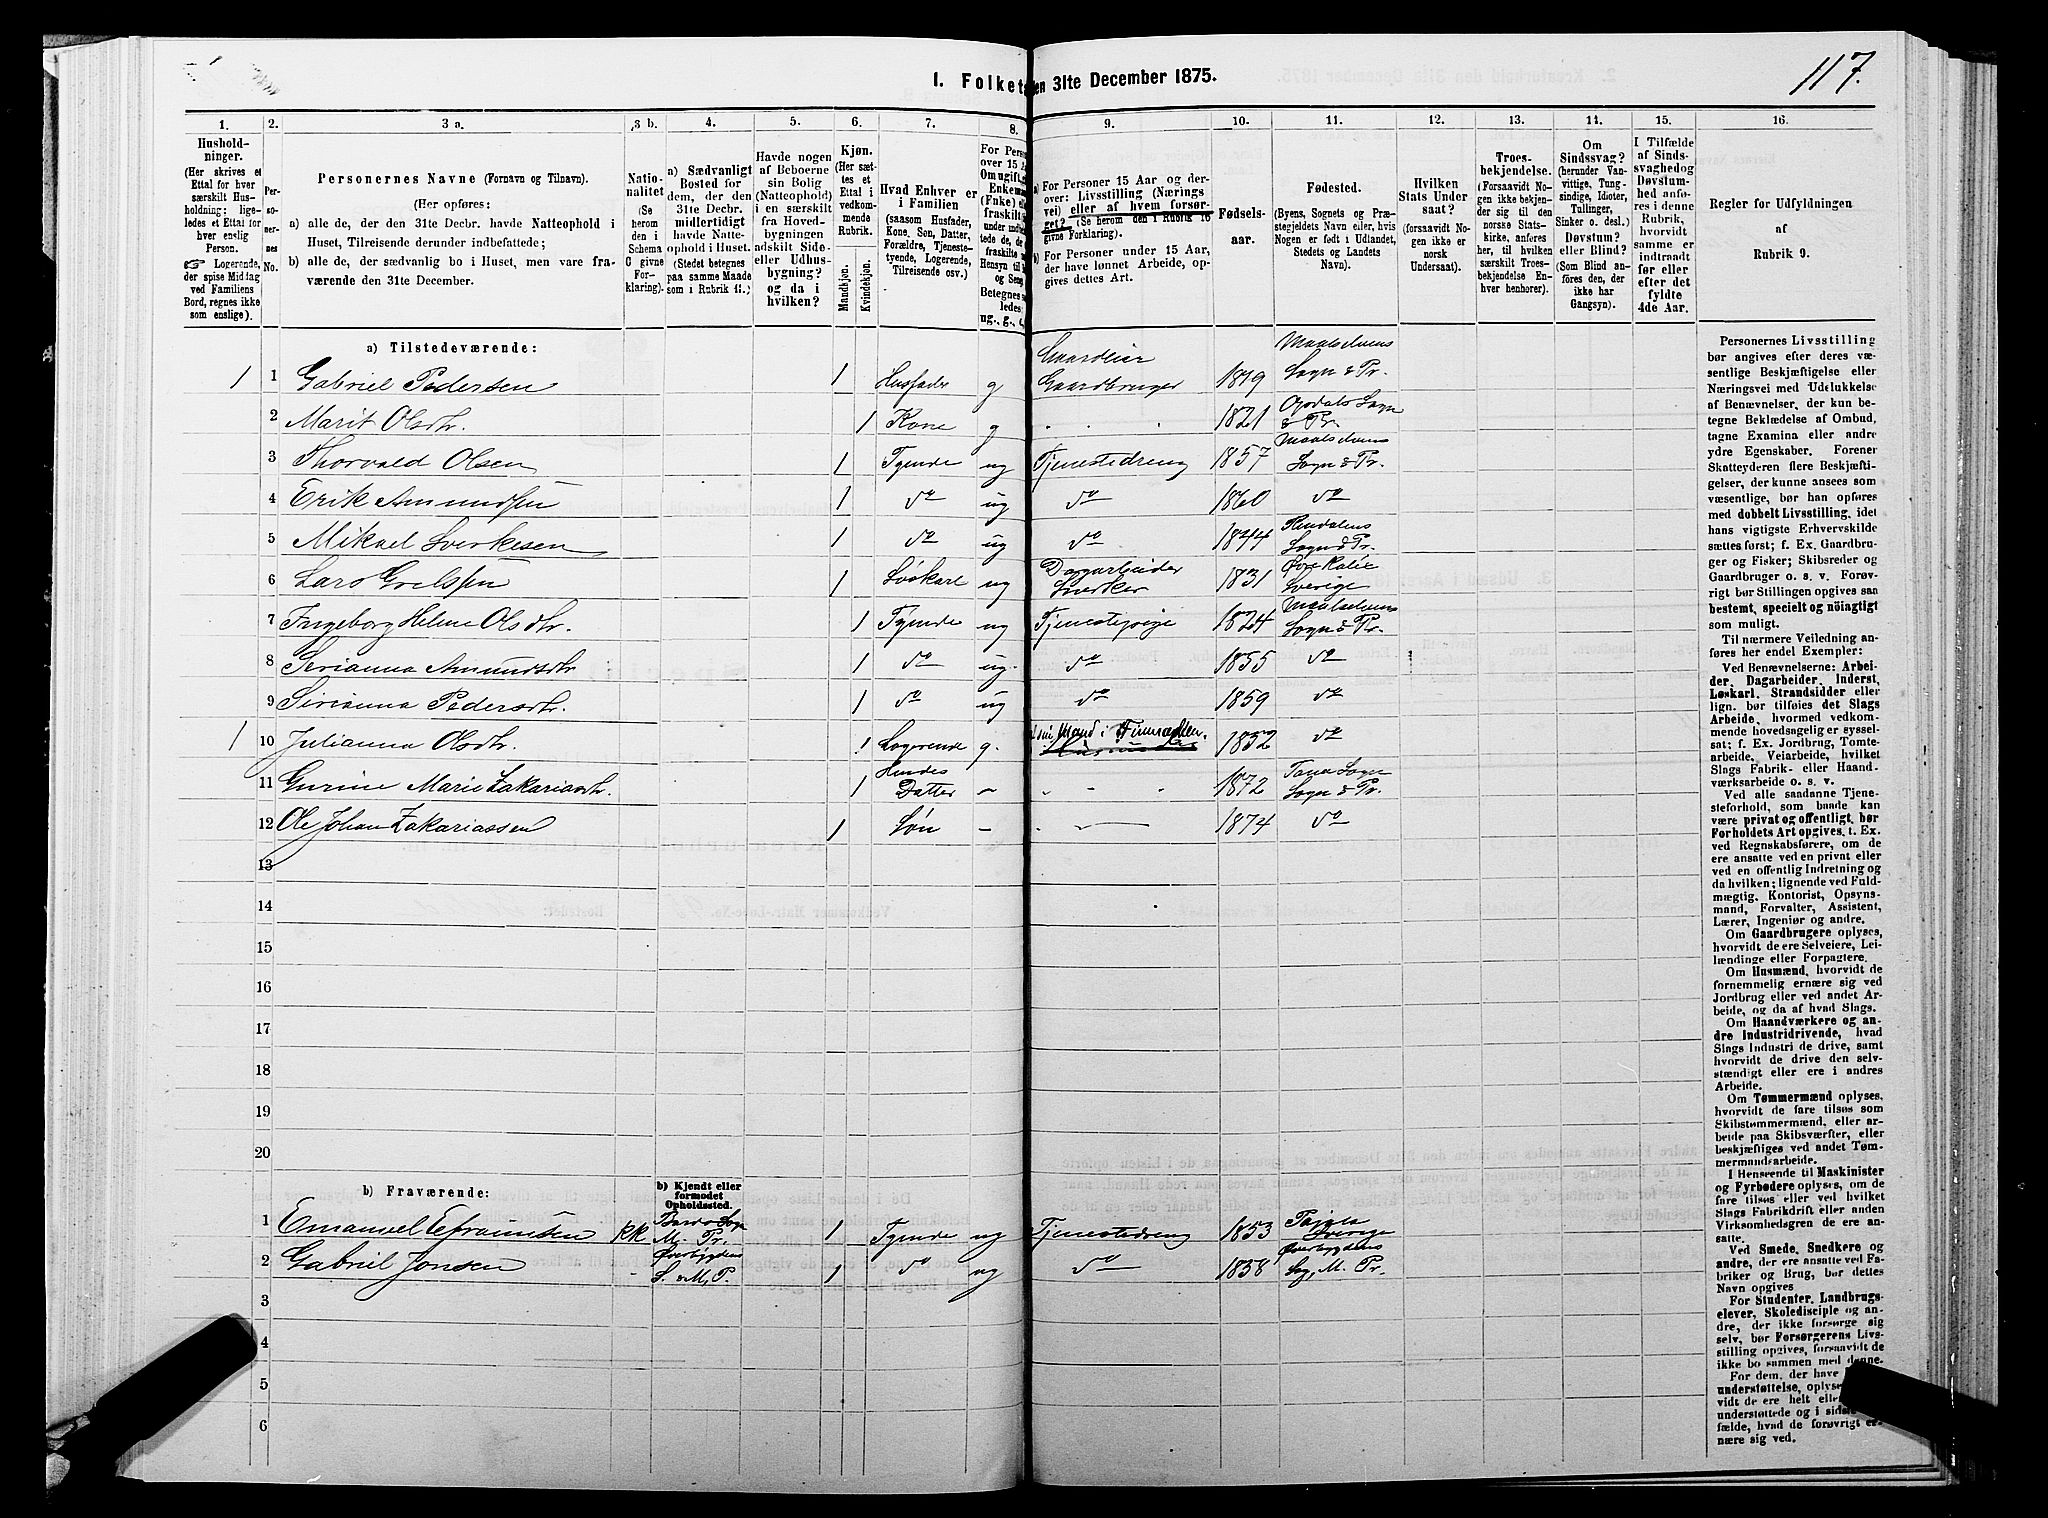 117.
1. Folket
en 31te December 1875.
1.
2.
3 a.
3 b.
4.
5.
6.
7.
8.
9.
10.
11.
12.
13.
14.
15.
16.
Hushold-
ninger.
(Her skrives et
Ettal for hver
særskilt Hus-
holdning; lige-
ledes et Ettal for
hver enslig
Person.
☞ Logerende,
der spise Middag
ved Familiens
Bord, regnes ikke
som enslige).
Per-
so-
ner-
nes
No.
Personernes Navne (Fornavn og Tilnavn).
(Her opføres:
a) alle de, der den 31te Decbr. havde Natteophold i
Huset, Tilreisende derunder indbefattede;
b) alle de, der sædvanlig bo i Huset, men vare fra-
værende den 31te December.
Natio-
nalitet
(Se
herom
den i
Schema
C givne
For-
klaring).
a) Sædvanligt
Bosted for
dem, der den
31te Decbr.
midlertidigt
havde Natte-
ophold i Huset.
(Stedet betegnes
paa samme Maade
som i Rubrik 11.)
Havde nogen
af Beboerne
sin Bolig
(Natteophold)
i en særskilt
fra Hoved-
bygningen
adskilt Side-
eller Udhus-
bygning?
og da i
hvilken?
Kjøn.
(Her sæt-
tes et
Ettal i
vedkom-
mende
Rubrik.
Mandkjøn.
Kvindekjøn.
Hvad Enhver er
i Familien
(saasom Husfader,
Kone, Søn, Datter,
Forældre, Tjeneste-
tyende, Logerende,
Tilreisende osv.)
For Pers
over 15
Om ugift,
Enkem
(Fnke) e
fraskilt
under indbe
tede de, de
fraskilte
Hensyn til
og Seng
Betegnes s
ledes:
ug., g., e
a) For Personer 15 Aar og der-
over: Livsstilling (Nærings
vei) eller af hvem forsør-
get? (Se herom den i Rubrik 16
givne Forklaring).
b) For Personer under 15 Aar,
der have lønnet Arbeide, op-
gives dettes Art.
Fødsels-
aar.
Fødested.
(Byens, Sognets og Præ-
stegjeldets Navn eller, hvis
Nogen er født i Udlandet,
Stedets og Landets
Navn).
Hvilken
Stats Under
saat?
(forsaavidt No-
gen ikke er
norsk
Undersaat).
Troes-
bekjendelse.
(Forsaavidt No-
gen ikke bekjen-
der sig til den
norske Stats-
kirke, anføres
her, til hvilken
særskilt Troes-
bekjendelse En-
hver henhorer).
Om
Sindssvag?
(herunder Van-
vittige, Tung-
sindige, Idioter,
Tullinger,
Sinker o. desl.)
Døvstum?
eller Blind?
(Som Blind an-
føres den, der
ikke har
Gangsyn).
I Tilfælde
af Sinds-
svaghed og
Døvstum-
hed anfø-
res i denne
Rubrik,
hvorvidt
samme er
indtraadt
før eller
efter det
fyldte
4de Aar.
Regler for Udfyldningen
af
Rubrik 9.
a) Tilstedeværende:
1 1 Gabriel Pedersen 1 Husfader g Gaardeier Gaardbruger 1819 Maalselvens Sogn & Pr.
2 Marit Olsdtr. 1 Kone g 1821 Opdals Sogn & Pr.
3 Thorvald Olsen 1 Tyende ug Tjenestedreng 1857 Maalselvens Sogn & Pr.
4 Erik Amundsen 1 do ug do 1860 do
5 Mikael Sverkesen 1 do ug do 1844 Rendalens Sogn & Pr.
6 Lars Grelsen 1 Løskarl ug Dagarbeider 1831 Sverige
7 Ingeborg Helene Olsdtr. 1 Tyende ug Tjenestepige 1824 Maalselvens Sogn & Pr.
8 Serianna Amundsdtr 1 do ug. do 1855 do
9 Serianna Pedersdtr. 1 do ug do 1859 do
1 10 Julianna Olsdtr. 1 Logerende g. Mand i Finmarken. 1852 do
11 Gurine Marie Zakariasdtr. 1 Hendes Datter - 1872 Tana Sogn Sogn & Pr.
12 Ole Johan Zakariassen 1 Søn - 1874 do
13
14
15
16
17
18
19
20
b) Fraværende:
b) Kjendt eller
formodet
Opholdssted.
1 Emanuel Efraimsen kk Bardo Sogn M. Pr. 1 Tyende ug Tjenestedreng 1853 Pajala Sverige
2 Gabriel Jonsen - Øverbygdens S. M. P. 1 do ug do 1858 Øverbygdens Sog, M. Pr.
3
4
5
6
Personernes Livsstilling
bør angives efter deres væ-
sentlige Beskjæftigelse eller
Næringsvei med Udelukkelse
af Benævnelser, der kun be-
tegne Beklædelse af Ombud,
tagne Examina eller andre
ydre Egenskaber. Forener
Skatteyderen flere Beskjæfti-
gelser, der kunne ansees som
væsentlige, bør han opføres
med dobbelt Livsstilling, idet
hans vigtigste Erhvervskilde
sættes først; f. Ex. Gaardbru-
ger og Fisker; Skibsreder og
Gaardbruger o. s. v. Forøv-
rigt bør Stillingen opgives saa
bestemt, specielt og nøiagtigt
som muligt.
Til nærmere Veiledning an-
føres her endel Exempler:
Ved Benævnelserne: Arbei-
der, Dagarbeider, Inderst,
Løskarl, Strandsidder eller
lign. bør tilføies det Slags
Arbeide, hvormed vedkom-
mende hovedsagelig er syssel-
sat; f. Ex. Jordbrug, Tomte-
arbeide, Veiarbeide, hvilket
Slags Fabrik- eller Haand-
værksarbeide o. s. v.
Ved alle saadanne Tjene-
steforhold, som baade kan
være privat og offentligt, bør
Forholdets Art opgives, t. Ex.
ved Regnskabsførere, om de
ere ansatte ved en privat eller
ved en offentlig Indretning og
da hvilken; lignende ved Fuld-
mægtig, Kontorist, Opsyns-
mand, Forvalter, Assistent,
Lærer, Ingeniør og andre.
Om Gaardbrugere oplyses,
hvorvidt de ere Selveiere, Lei-
lændinge eller Forpagtere.
Om Husmænd, hvorvidt de
fornemmelig ernære sig ved
Jordbrug eller ved andet Ar-
beide, og da af hvad Slags.
Om Haandværkere og an-
dre Industridrivende, hvad
Slags Industri de drive, samt
hvorvidt de drive den selv-
stændigt eller ere i andres
Arbeide.
Om Tømmermænd oplyses,
hvorvidt de fare tilsøs som
Skibstømmermænd, eller ar-
beide paa Skibsværfter, eller
beskjæftiges ved andet Tøm-
mermandsarbeide.
I Henseende til Maskinister
og Fyrbødere oplyses, om de
fare tilsøs eller ved hvilket
Slags Fabrikdrift eller anden
Virksomhedsgren de ere an-
satte.
Ved Smede, Snedkere og
andre, der ere ansatte ved Fa-
briker og Brug, bør dettes
Navn opgives
For Studenter, Landbrugs-
elever, Skoledisciple og an-
dre, der ikke forsørge sig
selv, bør Forsørgerens Livs-
stilling opgives, forsaavidt de
ikke bo sammen med denne.
For dem, der have
understøttelse, oplyse
vidt de ere helt elle
understøttede og i sids
fælde, hvad de forøvrigt er-
nære sig ved.